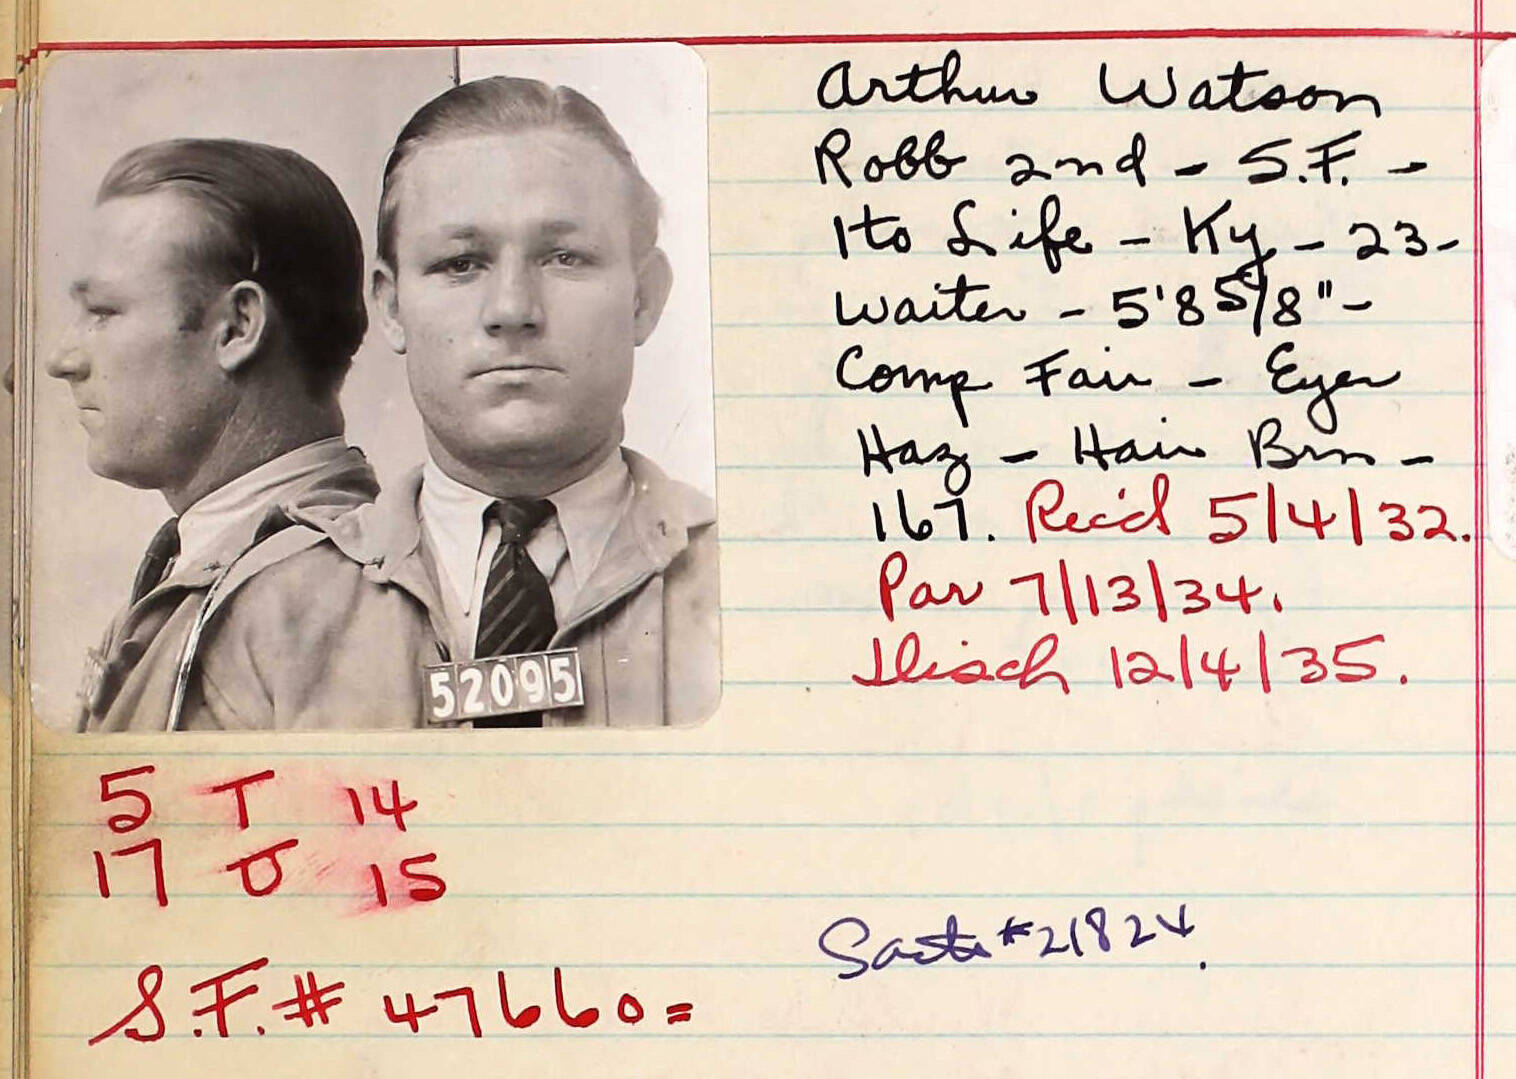 Arthur Watson
Robb 2nd - S.F. -
1 to Life - Ky - 23 -
Waiter - 5'8 5/8" -
Comp Fair - Eyes
Haz - Hair Brn -
167. Rec'd 5/4/32.
Par 7/13/34.
Disch 12/4/35.
52095
5 T 14
17 U 15
Sacto #21824.
S.F. # 47660=